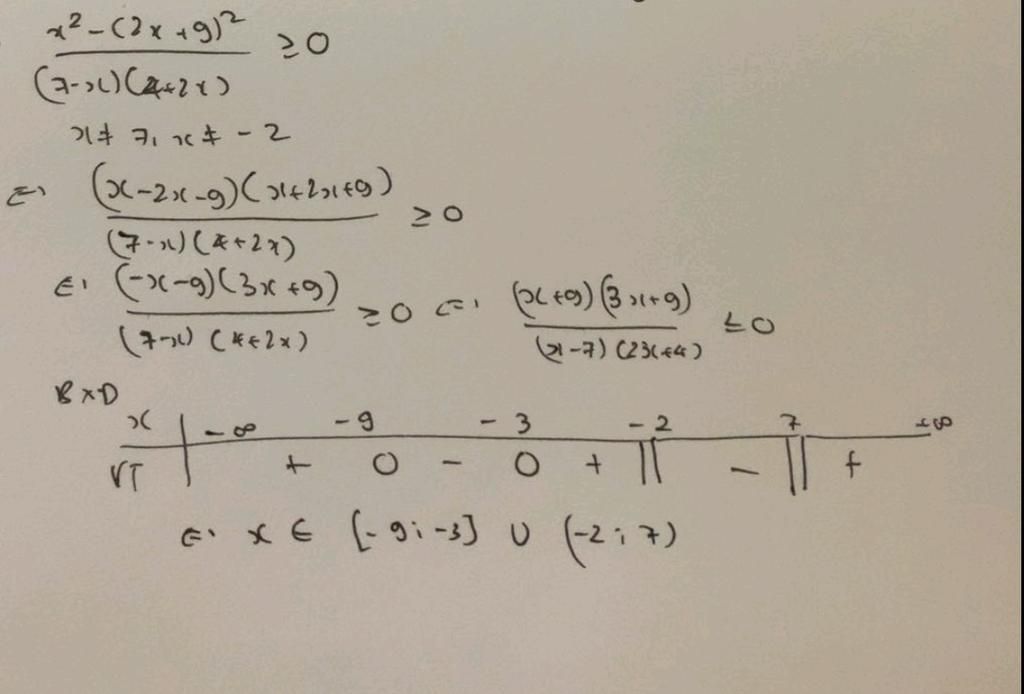 x² - (2x + 9)² / (7-x)(4+2x) ≥ 0
x ≠ 7, x ≠ -2
⇔ (x-2x-9)(x+2x+9) / (7-x)(4+2x) ≥ 0
⇔ (-x-9)(3x+9) / (7-x)(4+2x) ≥ 0 ⇔ (x+9)(3x+9) / (x-7)(2x+4) ≤ 0
BXD
x | -∞ -9 -3 -2 7 +∞
VT | + 0 - 0 + || - || +
⇔ x ∈ [-9; -3] ∪ (-2; 7)